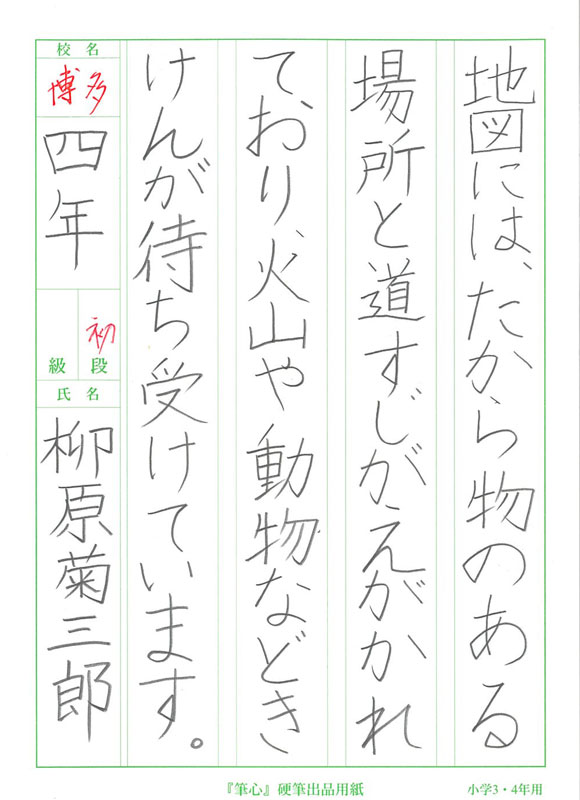 地図には、たから物のある
場所と道すじがえがかれ
ており、火山や動物などき
けんが待ち受けています。
校名
博多
四年
初
級段
氏名
柳原菊三郎
『筆心』硬筆出品用紙
小学3・4年用